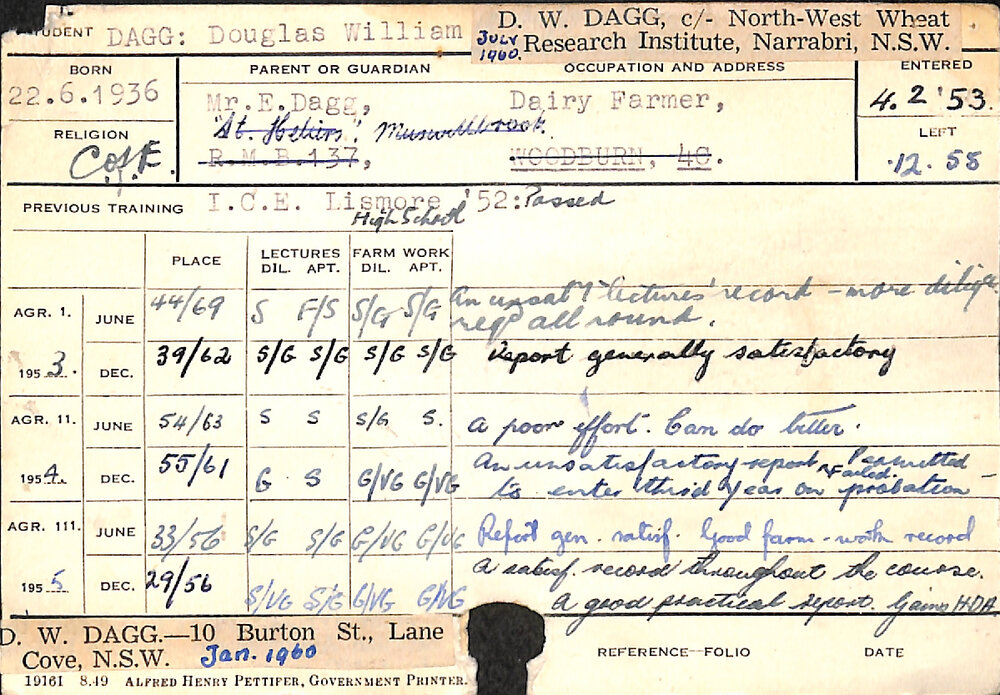 STUDENT DAGG: Douglas William
D. W. DAGG, c/- North-West Wheat
Research Institute, Narrabri, N.S.W.
JULY
1960.
BORN
22.6.1936
PARENT OR GUARDIAN
OCCUPATION AND ADDRESS
Mr.E.Dagg,
Dairy Farmer,
"St. Heliers". Muswellbrook.
R.M.B.137,
WOODBURN, 4C.
ENTERED
4.2'53.
RELIGION
C of E.
LEFT
.12.55
PREVIOUS TRAINING I.C.E. Lismore '52: Passed
High School
PLACE
LECTURES
FARM WORK
DIL. APT.
DIL. APT.
AGR. 1. JUNE 44/69 S F/S S/G S/G An unsat 'lectures' record - more
req all round.
1953. DEC. 39/62 S/G S/G S/G S/G Report generally satisfactory
AGR. 11. JUNE 54/63 S S S/G S. A poor effort. Can do better.
1954. DEC. 55/61 G S G/VG G/VG An unsatisfactory report & Failed. Permitted
to enter third year on probation
AGR. 111. JUNE 33/56 S/G S/G G/VG G/VG Report gen. satisf. Good farm-work record
1955 DEC. 29/56 S/VG S/G G/VG G/VG A satisf. record throughout the course.
A good practical report. Gains HDA
D. W. DAGG.—10 Burton St., Lane
Cove, N.S.W. Jan. 1960
REFERENCE--FOLIO
DATE
19161 8.49 ALFRED HENRY PETTIFER, GOVERNMENT PRINTER.